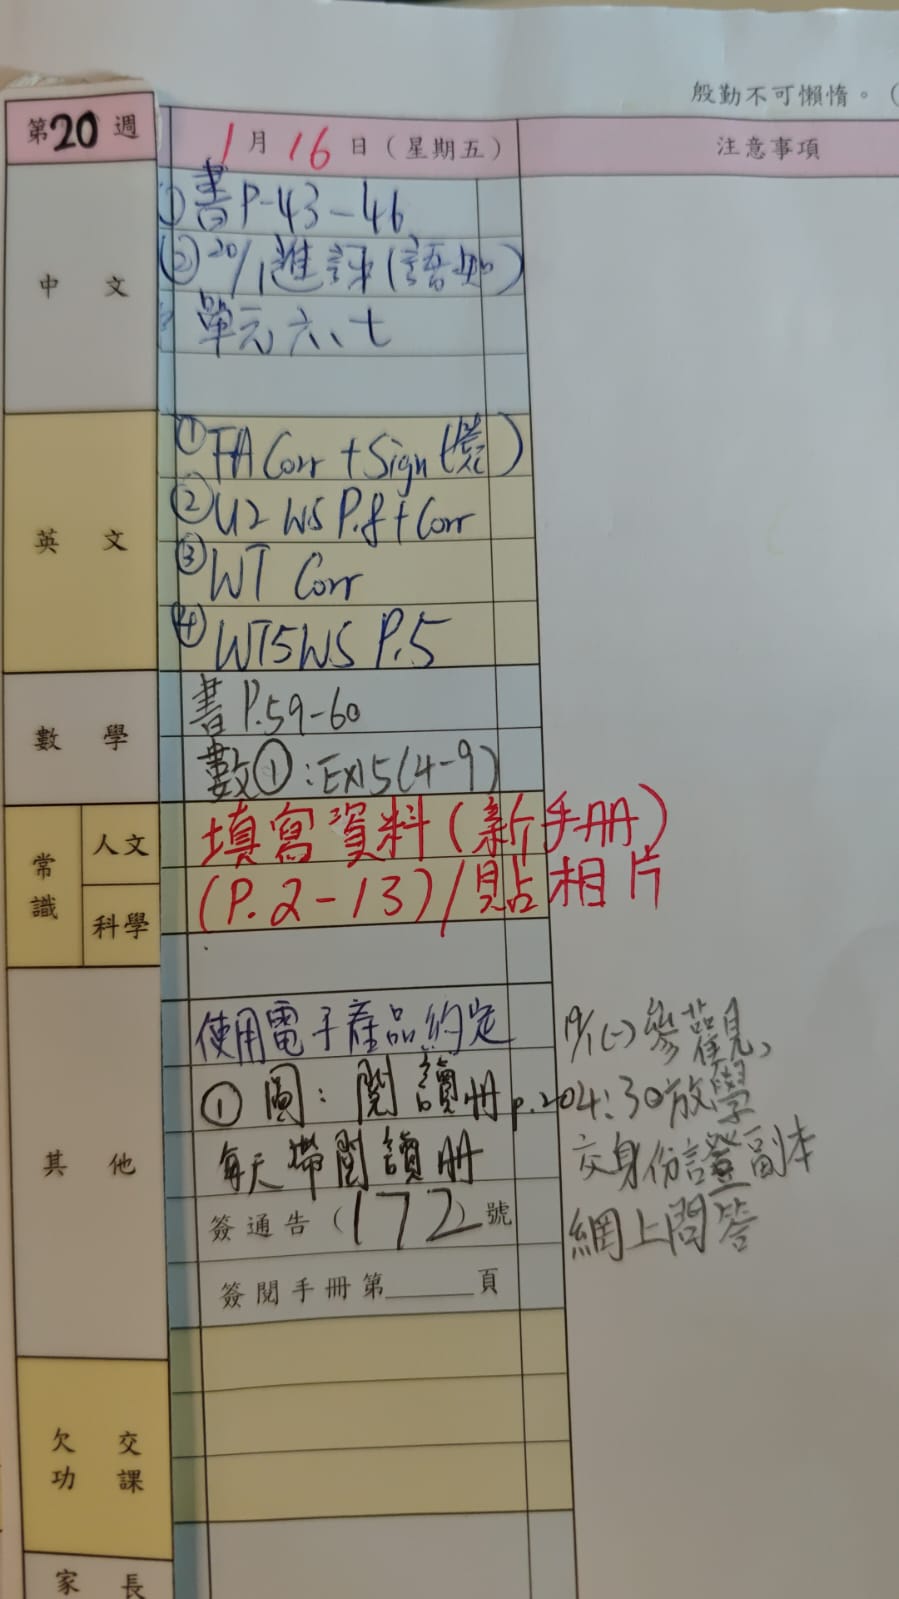 殷勤不可懶惰。（
第20週
1月16日（星期五）
注意事項
中文
① 書P.43-46
② 20/1進評(語知)
單元六、七
英文
① FA Corr + Sign
② U2 WS P.8 + Corr
③ WT Corr
④ WT5WS P.5
數學
書P.59-60
數①:EX15(4-9)
常識
人文
科學
填寫資料(新手冊)
(P.2-13)/貼相片
其他
使用電子產品約定
① 圖：閱讀冊 p.20
每天帶閱讀冊
簽通告（172）號
簽閱手冊第______頁
19/1(一)參觀、
4:30放學
交身份證副本
網上問答
欠交
功課
家長